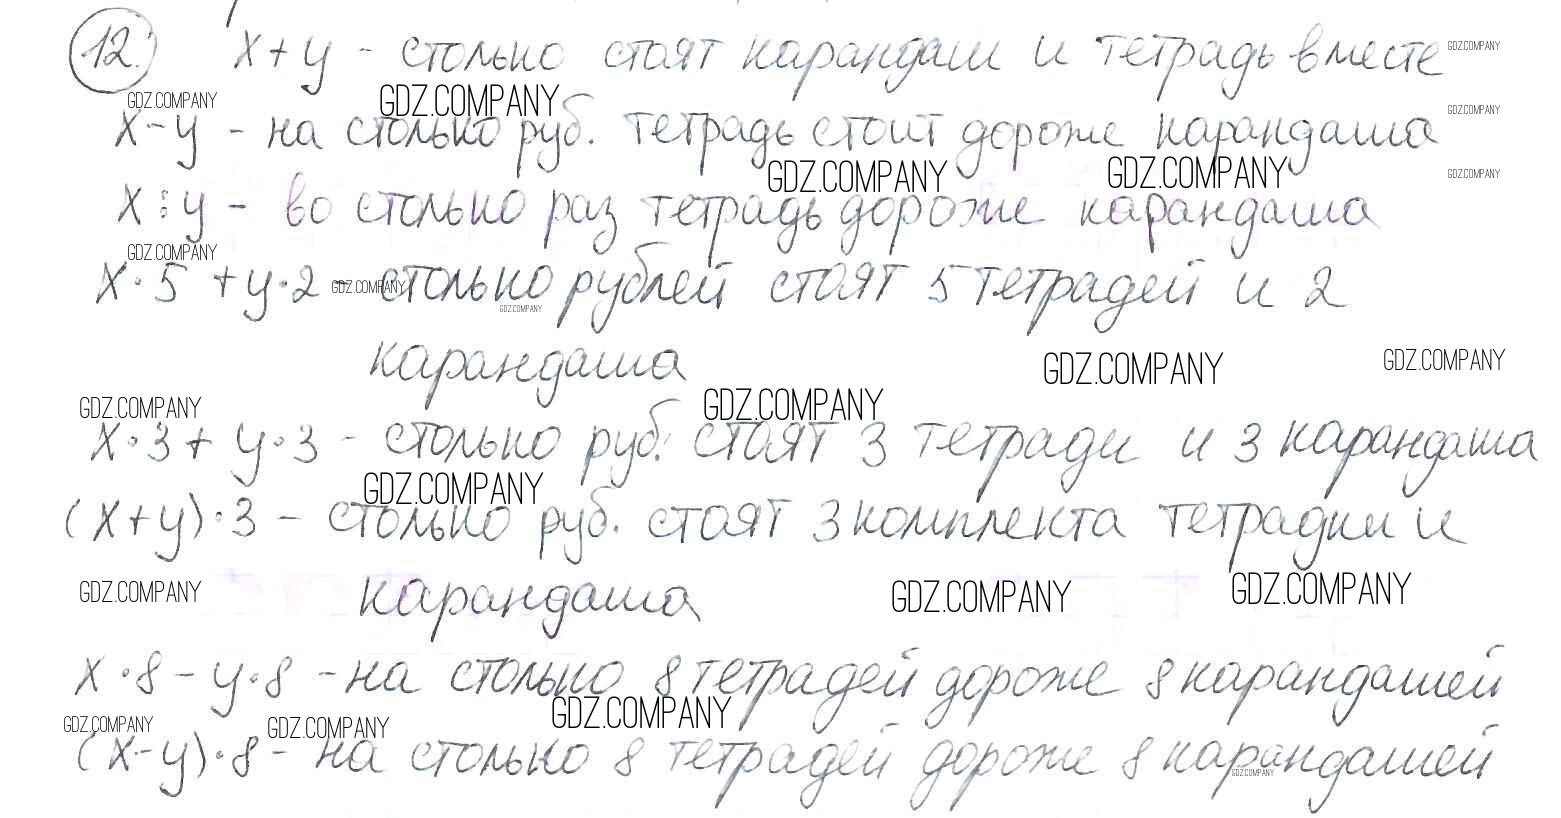 12. x + y - столько стоят карандаш и тетрадь вместе
GDZ.COMPANY
GDZ.COMPANY GDZ.COMPANY GDZ.COMPANY
x - y - на столько руб. тетрадь стоит дороже карандаша
GDZ.COMPANY GDZ.COMPANY GDZ.COMPANY
x : y - во столько раз тетрадь дороже карандаша
GDZ.COMPANY
x · 5 + y · 2 - столько рублей стоят 5 тетрадей и 2
GDZ.COMPANY
GDZ.COMPANY
карандаша
GDZ.COMPANY GDZ.COMPANY
GDZ.COMPANY GDZ.COMPANY
x · 3 + y · 3 - столько руб. стоят 3 тетради и 3 карандаша
GDZ.COMPANY
(x + y) · 3 - столько руб. стоят 3 комплекта тетрадки и
карандаша
GDZ.COMPANY GDZ.COMPANY GDZ.COMPANY
x · 8 - y · 8 - на столько 8 тетрадей дороже 8 карандашей
GDZ.COMPANY GDZ.COMPANY GDZ.COMPANY
(x - y) · 8 - на столько 8 тетрадей дороже 8 карандашей
GDZ.COMPANY